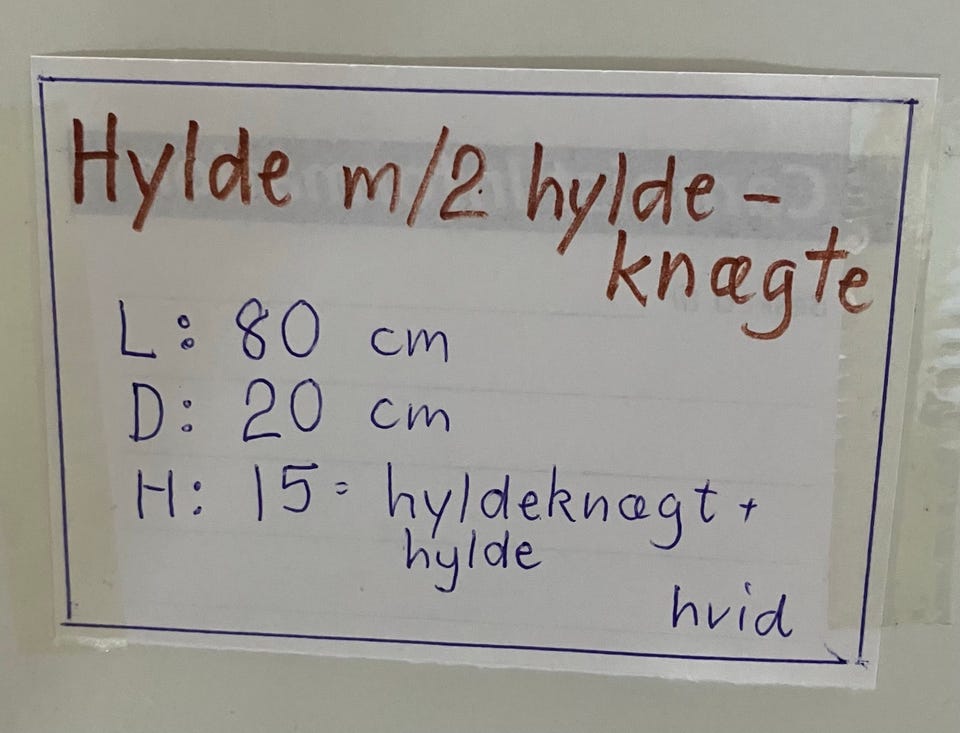 Hylde m/2 hylde-
knægte
L: 80 cm
D: 20 cm
H: 15 = hyldeknægt +
hylde
hvid